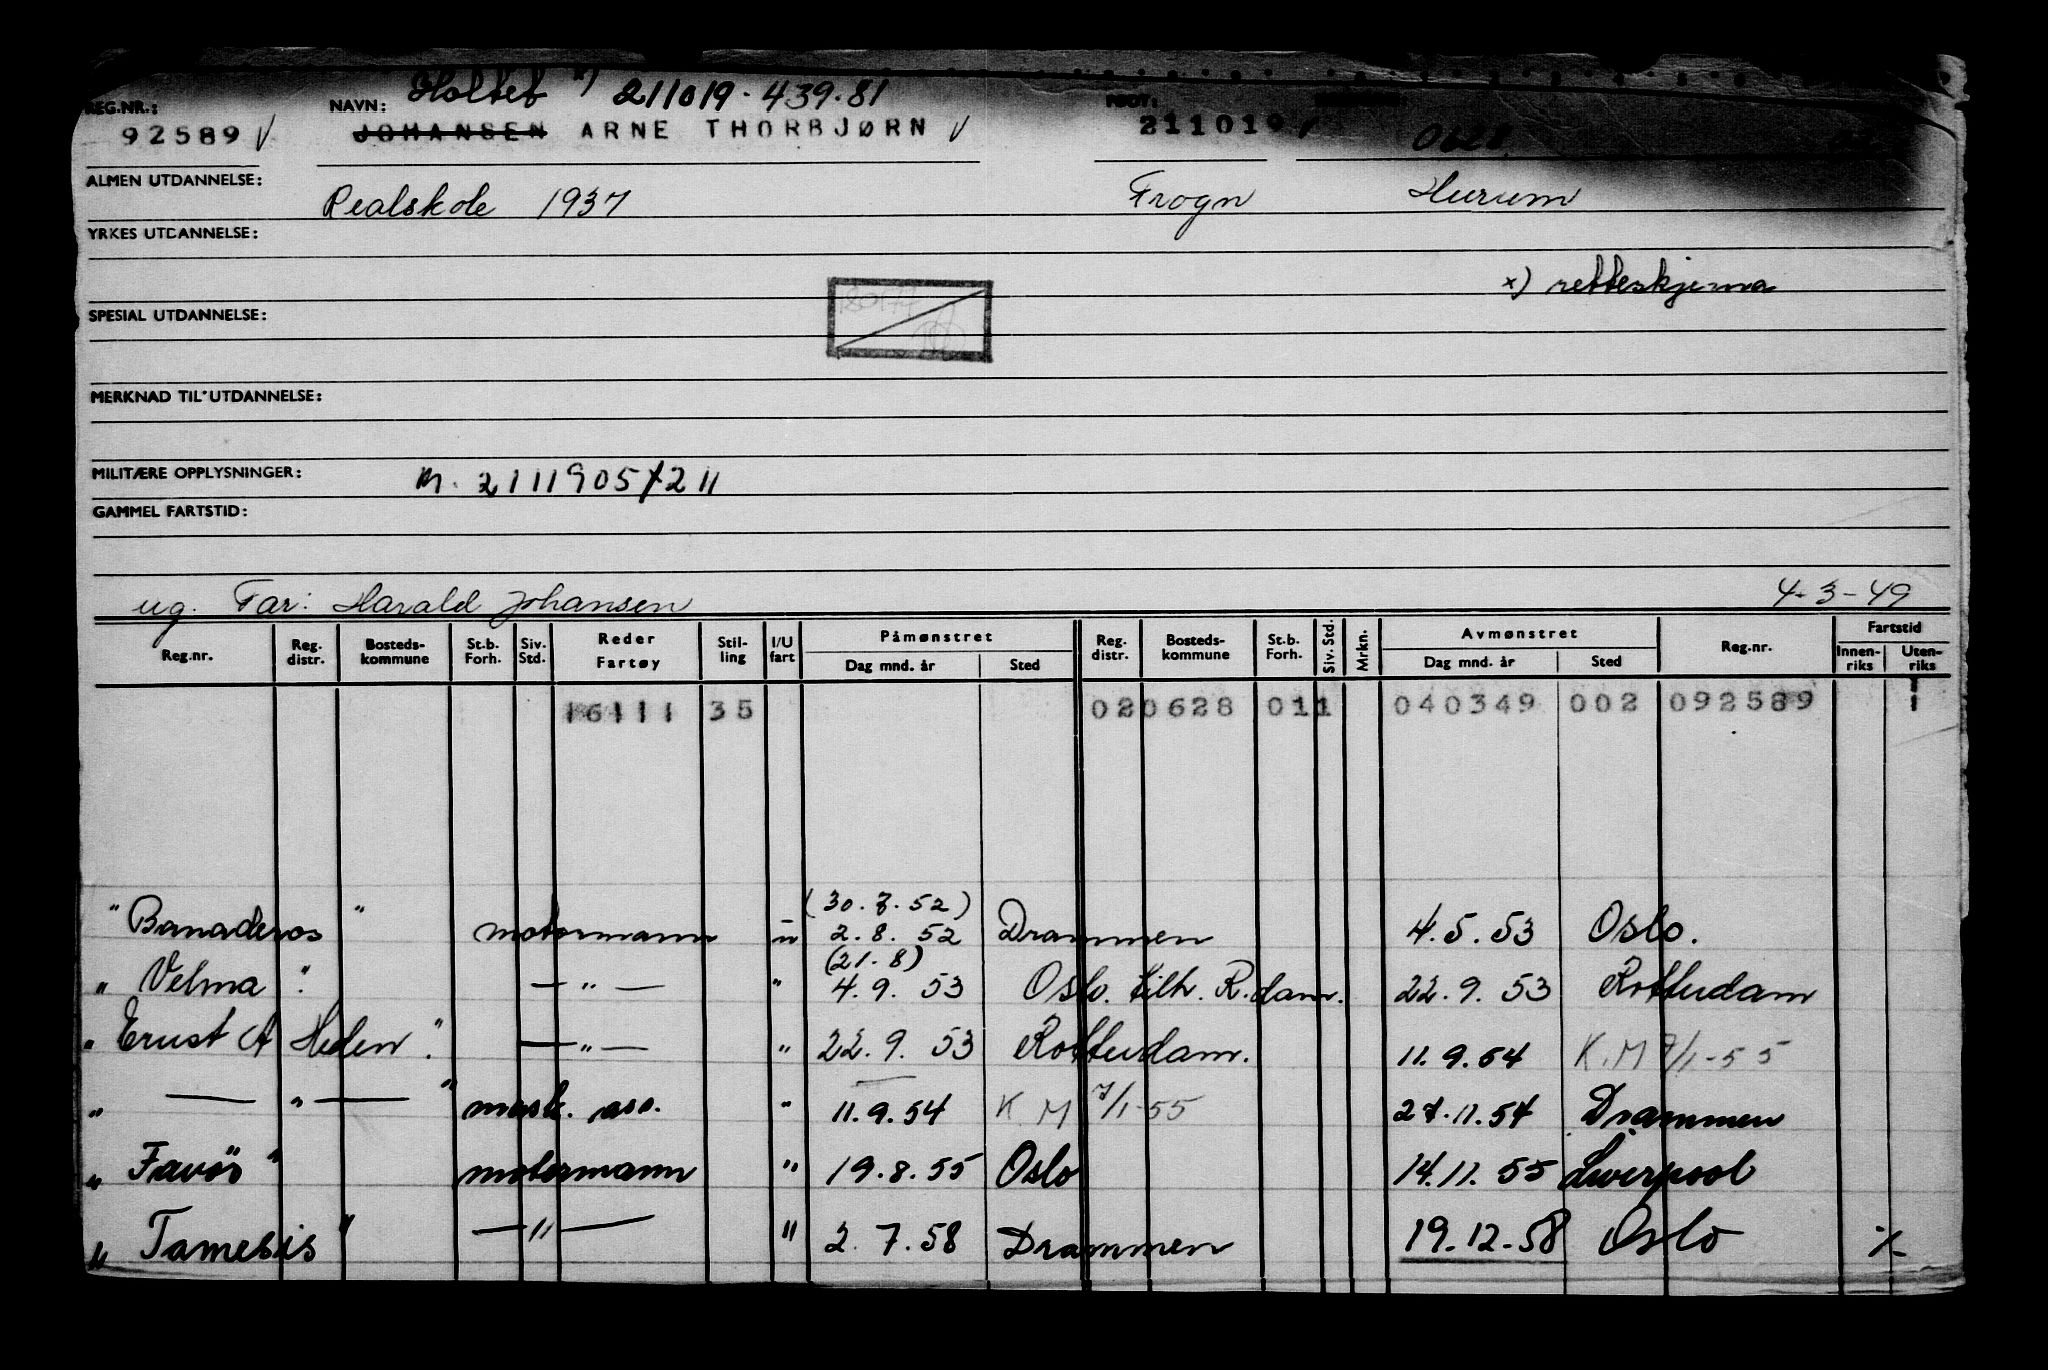 Holtet x) 211019-439.81
REG.NR.: NAVN: FØDT:
92589 V JOHANSEN ARNE THORBJØRN V 211019 0628
ALMEN UTDANNELSE: Realskole 1937 Frogn Hurum
YRKES UTDANNELSE:
x) retteskjema
SPESIAL UTDANNELSE:
MERKNAD TIL UTDANNELSE:
MILITÆRE OPPLYSNINGER: M. 2111905/211
GAMMEL FARTSTID:
ug. Far: Harald Johansen 4-3-49
Reg.nr. Reg. distr. Bosteds- kommune St.b. Forh. Siv. Std. Reder Fartøy Stil- ling I/U fart Påmønstret Dag mnd. år Sted Reg. distr. Bosteds- kommune St.b. Forh. Siv. Std. Mrkn. Avmønstret Dag mnd. år Sted Reg.nr. Fartstid Innen- riks Uten- riks
16111 35 020628 011 040349 002 092589 1
(30.7.52)
" Banaderos " motormann u 2.8.52 Drammen 4.5.53 Oslo.
(21.8)
" Velma " — " — " 4.9.53 Oslo. tilh. R.dam. 22.9.53 Rotterdam
" Ernst A Heden " — " — " 22.9.53 Rotterdam. 11.9.54 K.M 7/1-55
" — " — " mask. ass. " 11.9.54 K M 7/1-55 27.11.54 Drammen
" Favör " motormann " 19.8.55 Oslo 14.11.55 Liverpool
" Tamesis " — " — " 2.7.58 Drammen 19.12.58 Oslo